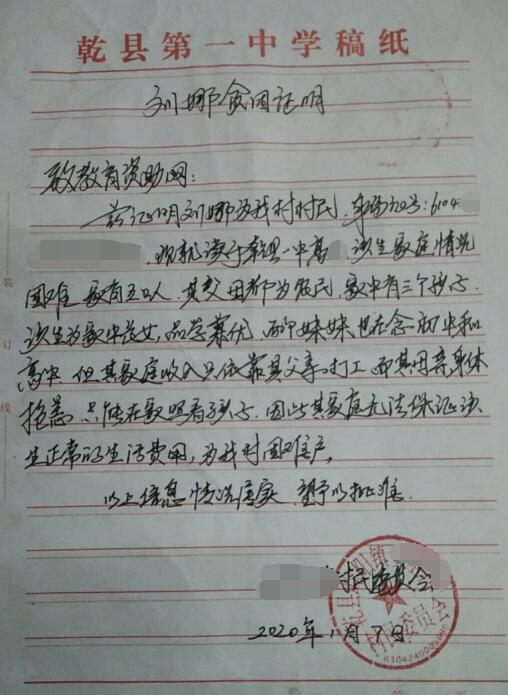 乾县第一中学稿纸
刘娜贫困证明
致教育资助网:
兹证明刘娜为我村村民,身份证号:6104
现就读于乾县一中高 该生家庭情况
困难 家有五口人 其父母都为农民,家中有三个孩子
该生为家中长女,品学兼优,两个妹妹也在念初中和
高中 但其家庭收入只依靠其父亲打工 而其母亲身体
抱恙 只能在家照看孩子 因此其家庭无法保证该
生正常的生活费用,为我村困难户,
以上信息情况属实 望予以批准.
村民委员会
2020年1月7日
装
订
线
乾县 镇
村民委员会